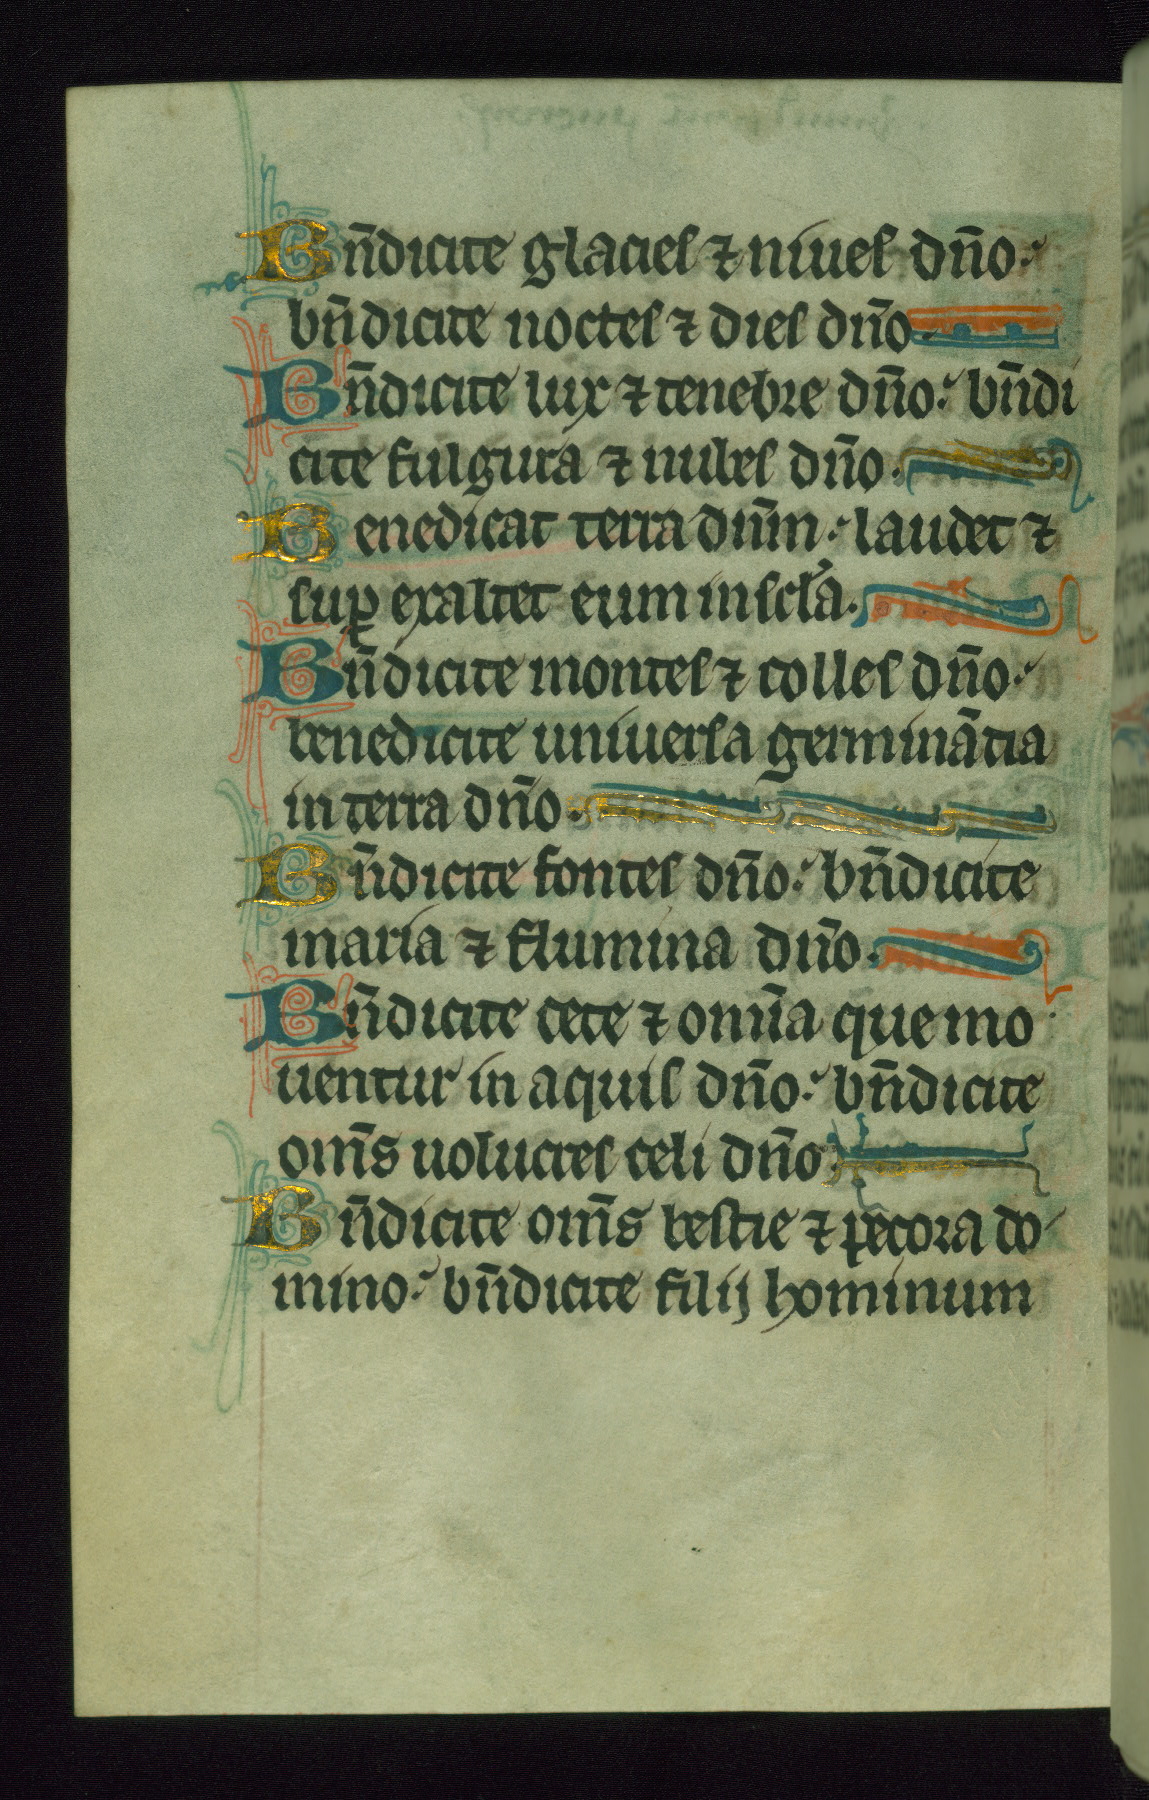 Bn̄dicite glacies ⁊ niues dn̄o·
bn̄dicite noctes ⁊ dies dn̄o·
Bn̄dicite lux ⁊ tenebre dn̄o· bn̄di
cite fulgura ⁊ nubes dn̄o·
Benedicat terra dnm̄· laudet ⁊
suꝑ exaltet eum in scl̄a·
Bn̄dicite montes ⁊ colles dn̄o·
benedicite uniuersa germinātia
in terra dn̄o·
Bn̄dicite fontes dn̄o· bn̄dicite
maria ⁊ flumina dn̄o·
Bn̄dicite cete ⁊ omn̄a que mo
uentur in aquis dn̄o· bn̄dicite
om̄s uolucres celi dn̄o·
Bn̄dicite om̄s bestie ⁊ pecora do
mino· bn̄dicite filij hominum